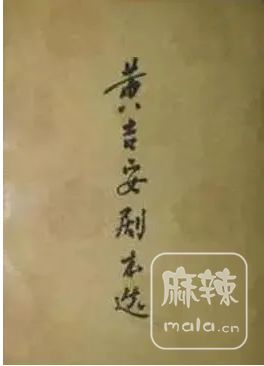 黄吉安剧本选
麻辣
mala.cn